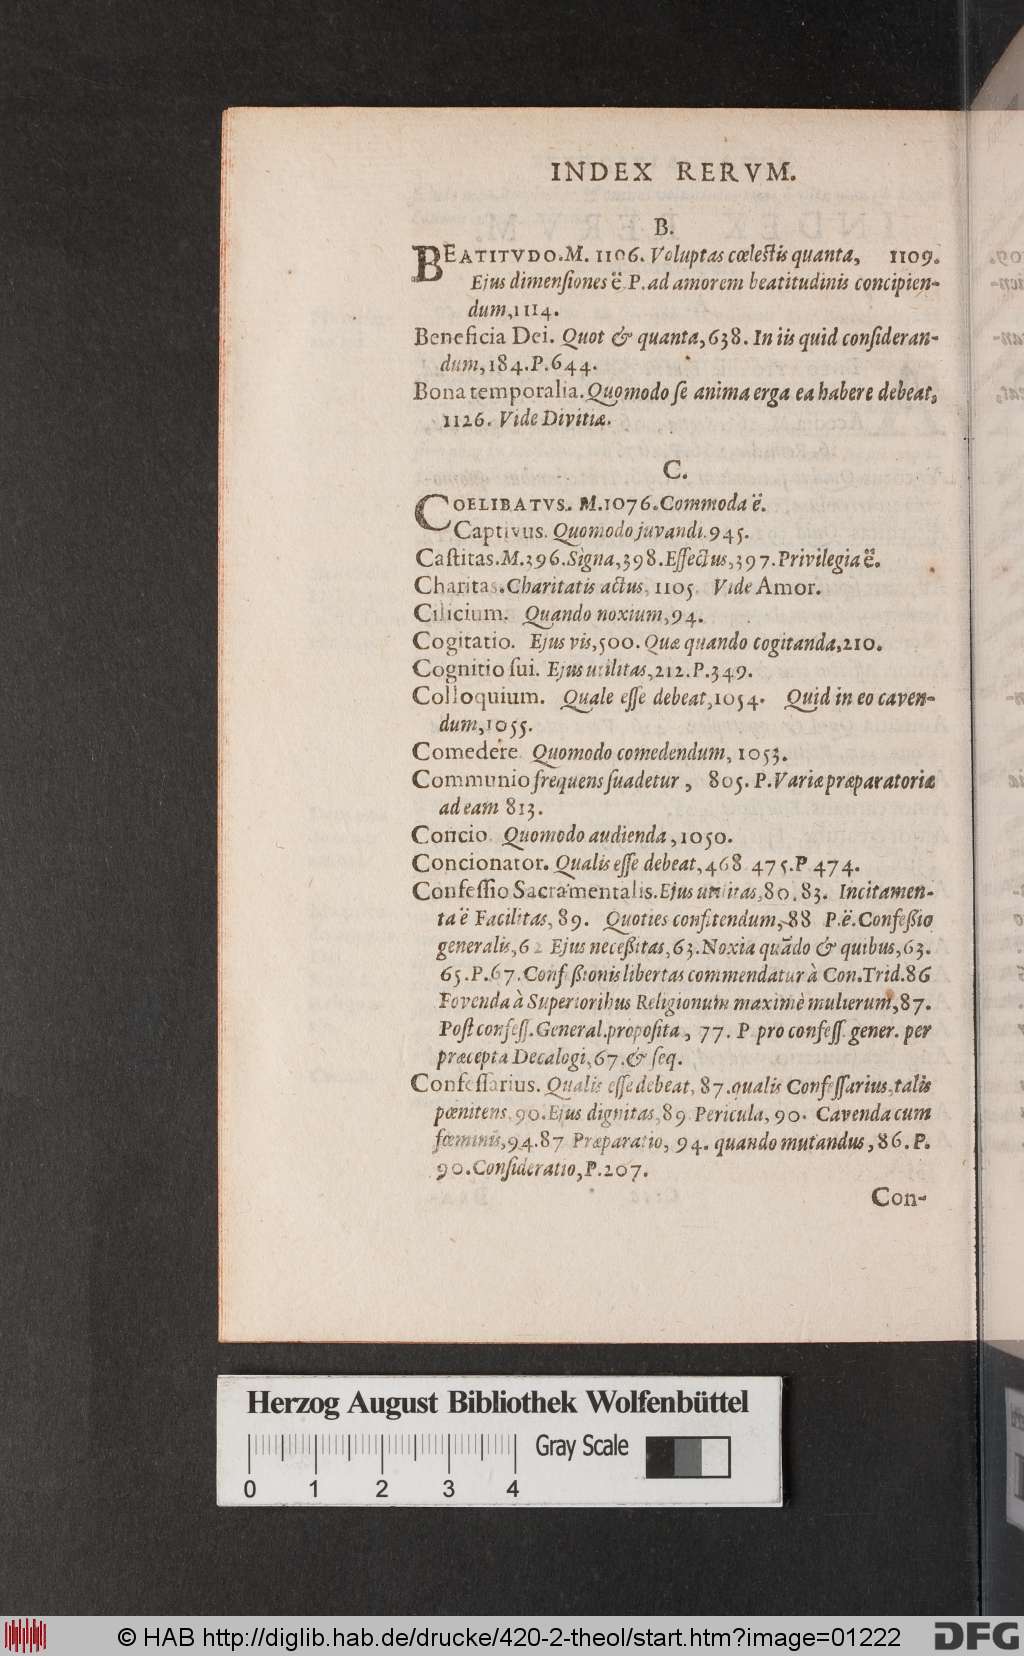 INDEX RERVM.
B.
BEATITVDO.M. 1106. Voluptas cœlestis quanta, 1109.
Ejus dimensiones ë P. ad amorem beatitudinis concipien-
dum,1114.
Beneficia Dei. Quot & quanta,638. In iis quid consideran-
dum,184.P.644.
Bona temporalia.Quomodo se anima erga ea habere debeat,
1126. Vide Divitiæ.
C.
COELIBATVS. M.1076.Commoda ë.
Captivus. Quomodo juvandi.945.
Castitas.M.396.Signa,398.Effectus,397.Privilegia ë.
Charitas.Charitatis actus, 1105. Vide Amor.
Cilicium. Quando noxium,94.
Cogitatio. Ejus vis,500.Quæ quando cogitanda,210.
Cognitio sui. Ejus utilitas,212.P.349.
Colloquium. Quale esse debeat,1054. Quid in eo caven-
dum,1055.
Comedere. Quomodo comedendum, 1053.
Communio frequens suadetur, 805. P.Variæ præparatoriæ
ad eam 813.
Concio. Quomodo audienda,1050.
Concionator. Qualis esse debeat,468 475.P 474.
Confessio Sacramentalis.Ejus utilitas,80.83. Incitamen-
ta ë Facilitas,89. Quoties confitendum,88 P.ë.Confeßio
generalis,62 Ejus neceßitas,63.Noxia quādo & quibus,63.
65.P.67.Confeßionis libertas commendatur à Con.Trid.86
Fovenda à Superioribus Religionum maximè mulierum,87.
Post confess.General.proposita, 77. P pro confess. gener. per
præcepta Decalogi,67.& seq.
Confessarius. Qualis esse debeat, 87.qualis Confessarius,talis
pœnitens,90.Ejus dignitas,89 Pericula, 90. Cavenda cum
fœminis,94.87 Præparatio, 94. quando mutandus,86.P.
90.Consideratio,P.207.
Con-
Herzog August Bibliothek Wolfenbüttel
Gray Scale
0 1 2 3 4
© HAB http://diglib.hab.de/drucke/420-2-theol/start.htm?image=01222
DFG